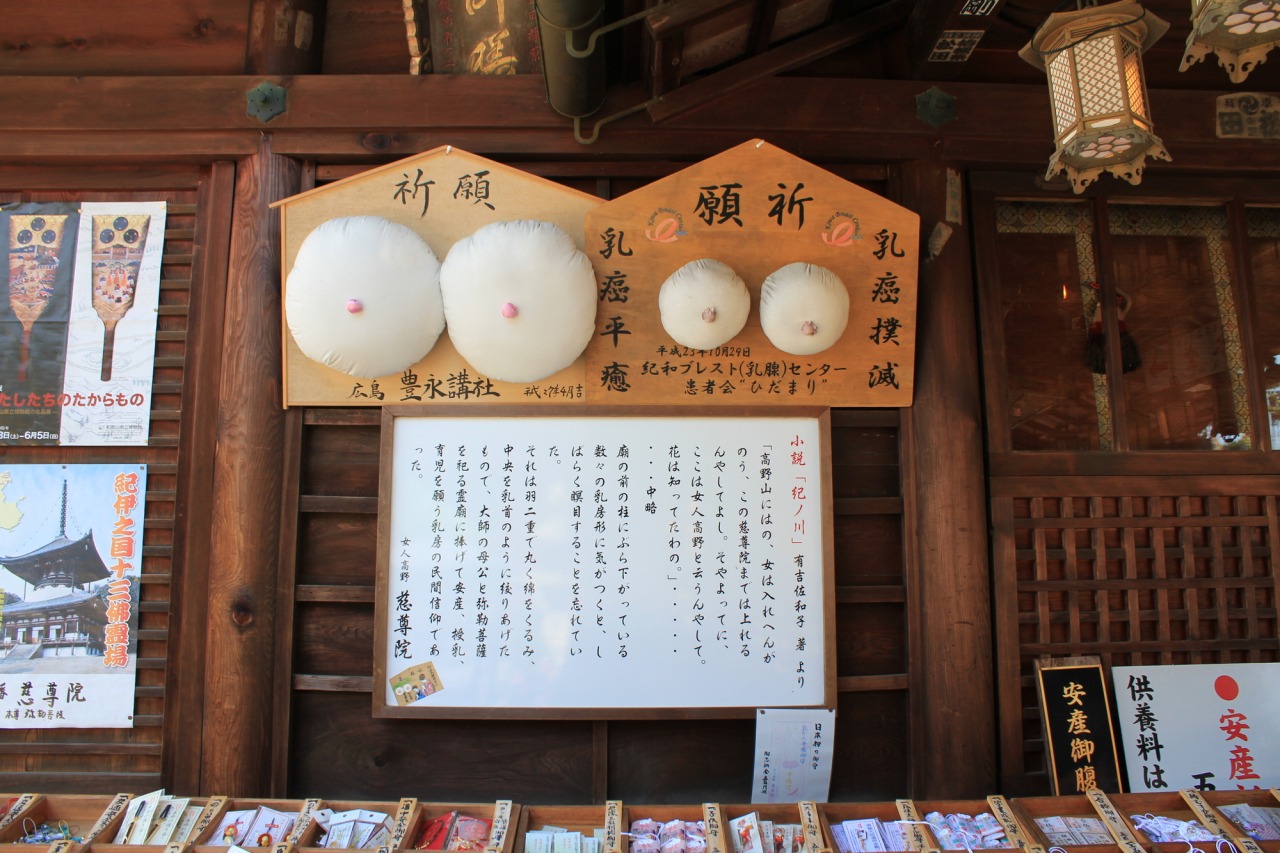 祈願
広島 豊永講社
願祈
乳癌撲滅
乳癌平癒
平成23年10月29日
紀和ブレスト(乳腺)センター
患者会"ひだまり"
小説「紀ノ川」 有吉佐和子 著 より
「高野山にはの、女は入れへんが
のう、この慈尊院までは上れる
んやしてよし。そやよってに、
ここは女人高野と云うんやして。
花は知ってたわの。」・・・・
・・・中略
廟の前の柱にぶら下がっている
数々の乳房形に気がつくと、し
ばらく瞑目することを忘れてい
た。
それは羽二重で丸く綿をくるみ、
中央を乳首のように絞りあげた
もので、大師の母公と弥勒菩薩
を祀る霊廟に捧げて安産、授乳、
育児を願う乳房の民間信仰であ
った。
女人高野 慈尊院
たしたちのたからもの
8日(土)~6月5日(日)
紀伊之国十三佛霊場
慈尊院
安産御腹
供養料は
安産
五